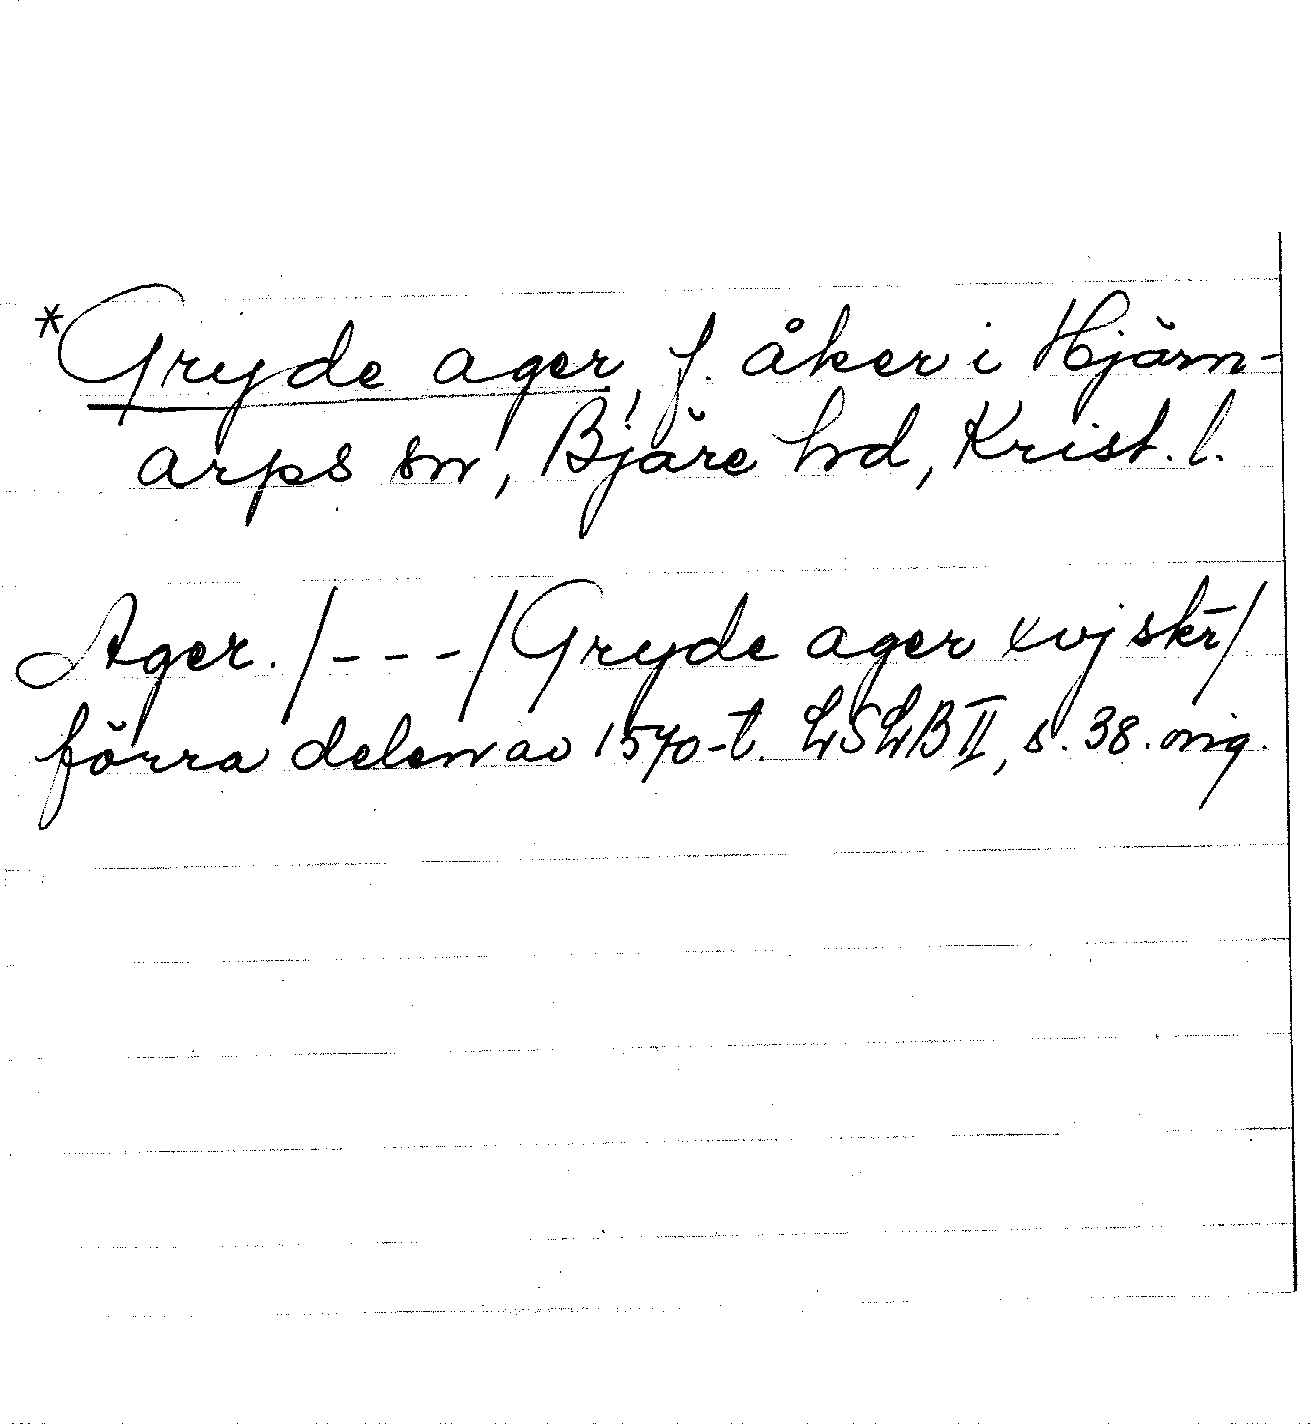 *Gryde ager, f. åker i Hjärn-
arps sn, Bjäre hd, Krist. l.
Ager. /- - -/ Gryde ager xvj skr̄/
förra delen av 1570-t. LSLB II, s. 38. orig.